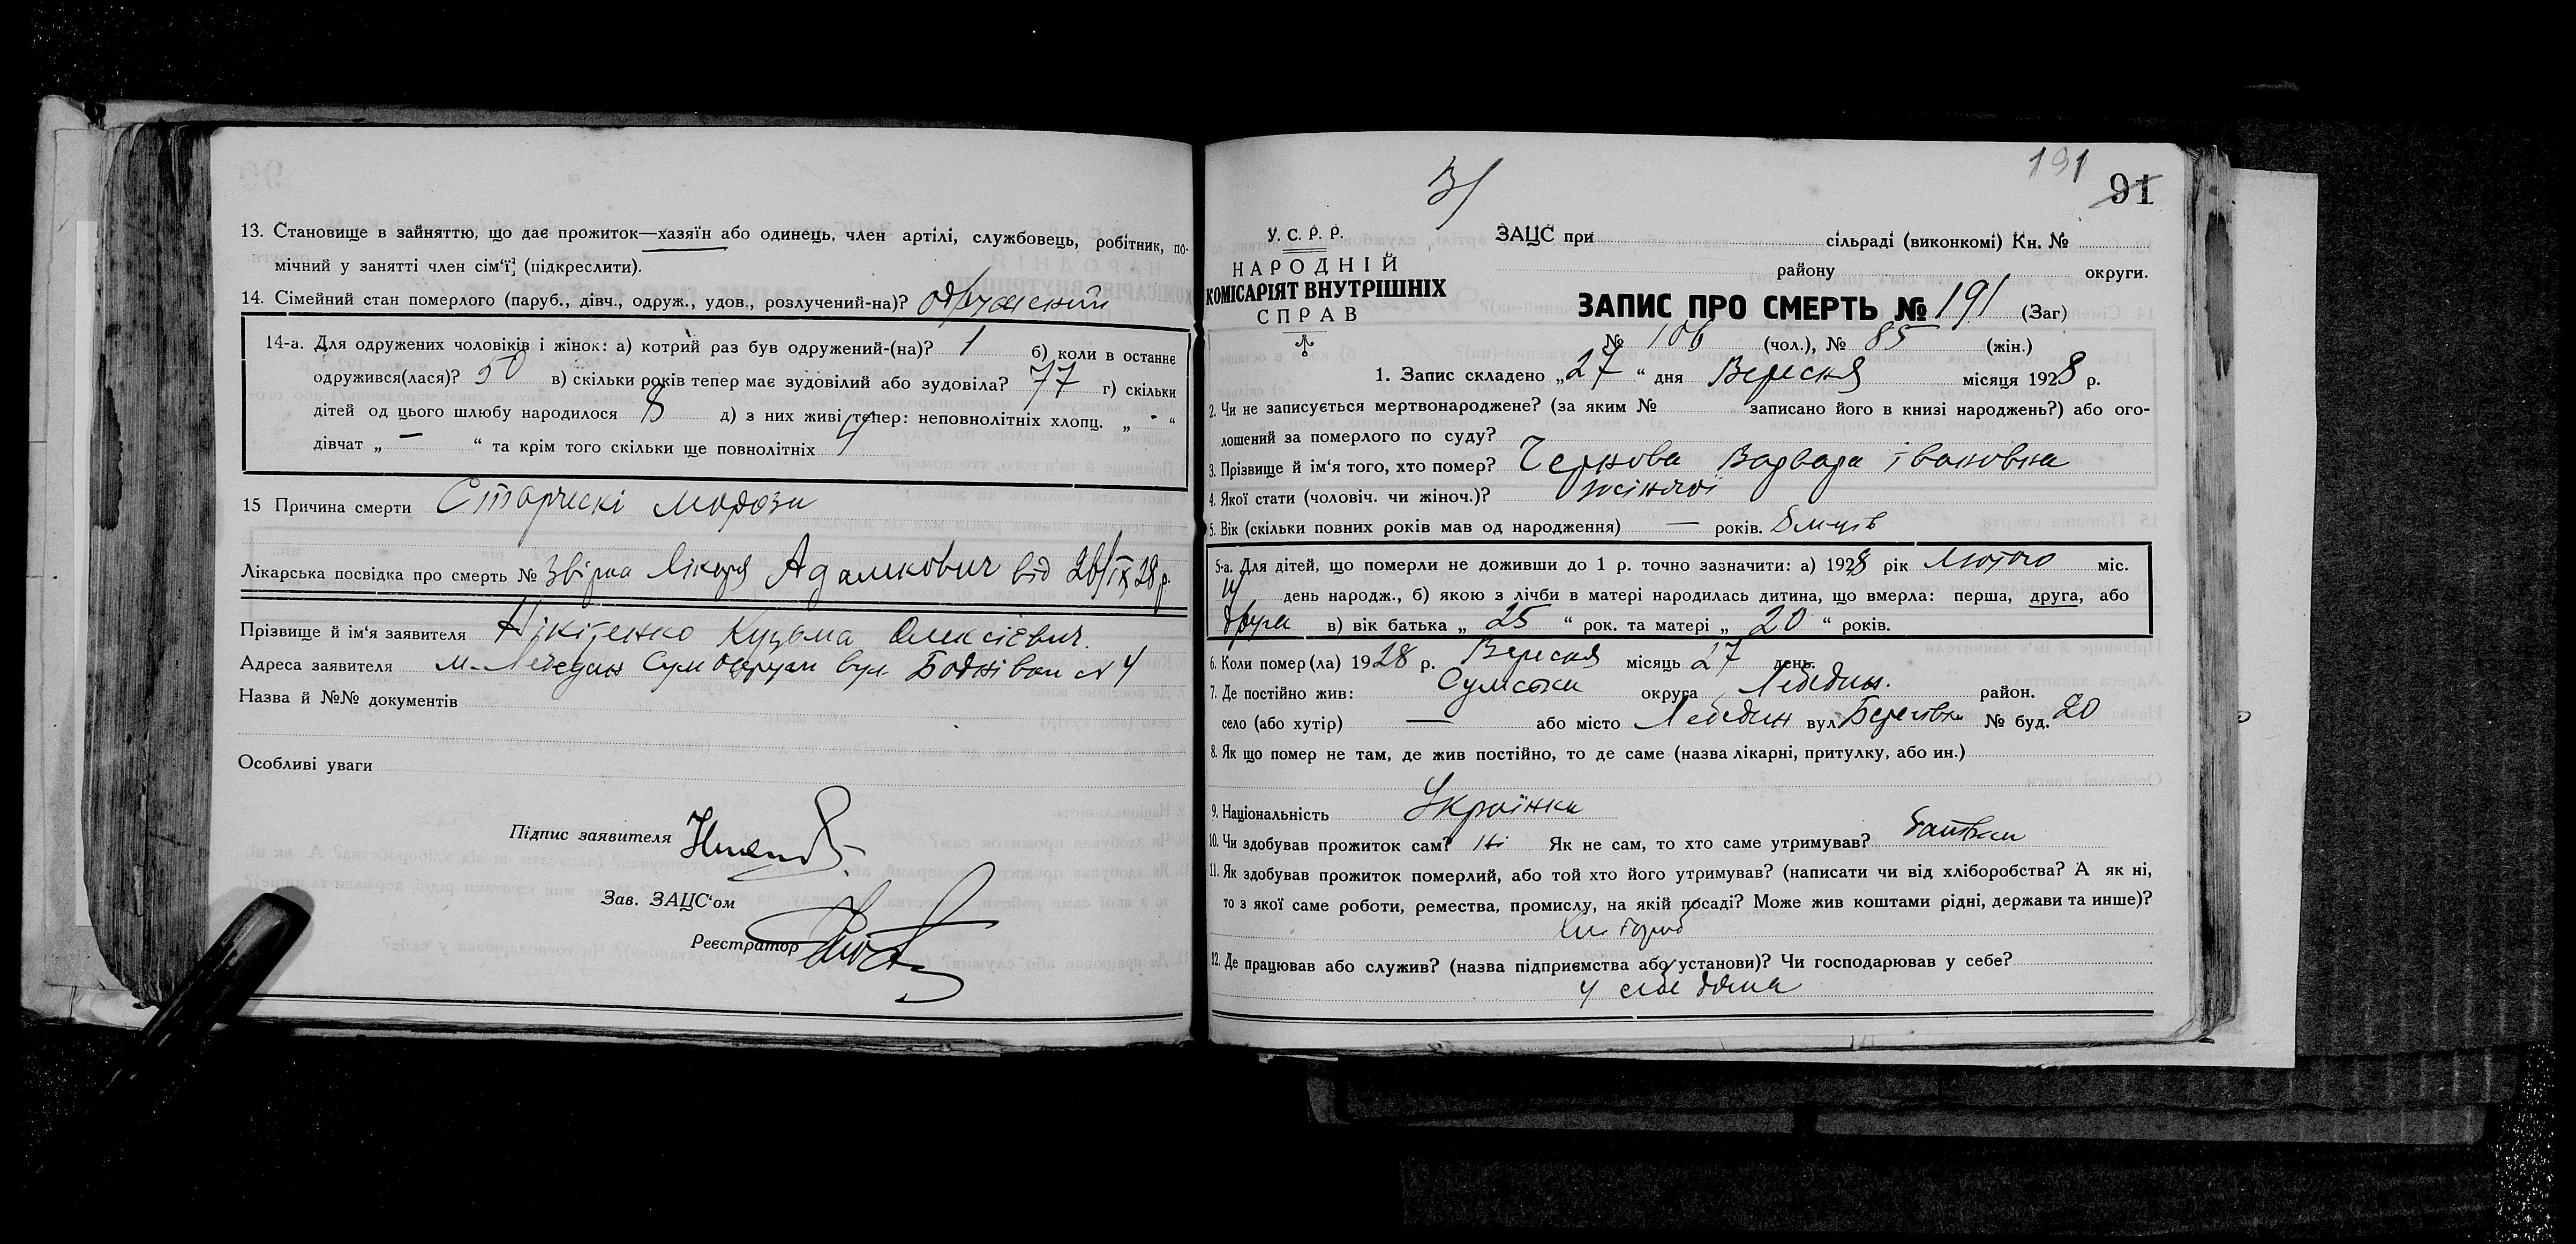 13. Становище в зайняттю, що дає прожиток—хазяїн або одинець, член артілі, службовець, робітник, по-
мічний у занятті член сім'ї (підкреслити).
14. Сімейний стан померлого (паруб., дівч., одруж., удов., розлучений-на)?
14-а. Для одружених чоловіків і жінок: а) котрий раз був одружений-(на)? 1 б) коли в останнє
одружився(лася)? 50 в) скільки років тепер має зудовілий або зудовіла? 77 г) скільки
дітей од цього шлюбу народилося 8 д) з них живі тепер: неповнолітніх хлопц. „ - “
дівчат „ — “ та крім того скільки ще повнолітніх 4
15 Причина смерти Старческі
Лікарська посвідка про смерть № Лікаря Адамкович від 26/IX 28 р.
Прізвище й ім'я заявителя Нікітенко Кузьма Олексієвич.
Адреса заявителя м. Лебедин Сум округи вул. № 4
Назва й №№ документів
Особливі уваги
Підпис заявителя
Зав. ЗАЦС'ом
Реєстратор
191
91
У. С. Р. Р.
НАРОДНІЙ
КОМІСАРІЯТ ВНУТРІШНІХ
СПРАВ
ЗАЦС при сільраді (виконкомі) Кн. №
району округи.
ЗАПИС ПРО СМЕРТЬ № 191 (Заг)
№ 106 (чол.), № 85 (жін.)
1. Запис складено „27“ дня Вересня місяця 1928 р.
2. Чи не записується мертвонароджене? (за яким № записано його в книзі народжень?) або ого-
лошений за померлого по суду?
3. Прізвище й ім'я того, хто помер? Черкова Варвара івановна
4. Якої стати (чоловіч. чи жіноч.)? жіночої
5. Вік (скільки повних років мав од народження) — років.
5-а. Для дітей, що померли не доживши до 1 р. точно зазначити: а) 1928 рік Лютого міс.
14 день народж., б) якою з лічби в матері народилась дитина, що вмерла: перша, друга, або
друга в) вік батька „ 25 “ рок. та матері „ 20 “ років.
6. Коли помер(ла) 1928 р. Вересня місяць 27 день.
7. Де постійно жив: Сумська округа Лебедин. район.
село (або хутір) — або місто Лебедин вул. № буд. 20
8. Як що помер не там, де жив постійно, то де саме (назва лікарні, притулку, або ин.)
9. Національність Українка
10. Чи здобував прожиток сам? Ні Як не сам, то хто саме утримував? батьки
11. Як здобував прожиток померлий, або той хто його утримував? (написати чи від хліборобства? А як ні,
то з якої саме роботи, ремества, промислу, на якій посаді? Може жив коштами рідні, держави та инше)?
12. Де працював або служив? (назва підприємства або установи)? Чи господарював у себе?
у себе дома